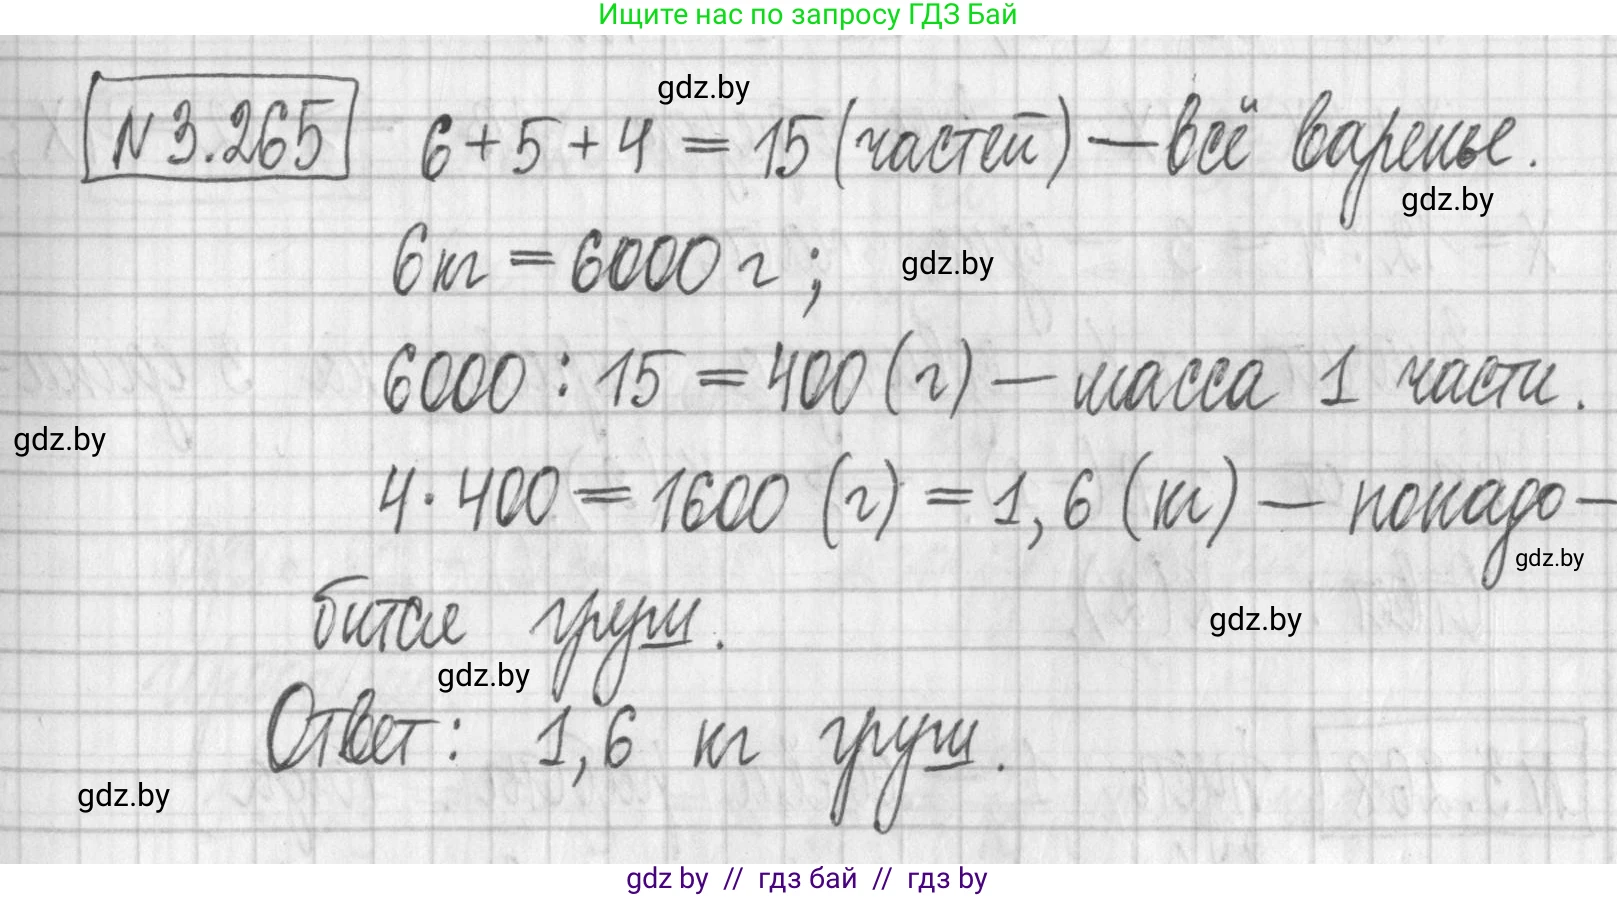 Ищите нас по запросу ГДЗ Бай
gdz.by
N 3.265 6+5+4 = 15 (частей) — всё варенье.
gdz.by
6 кг = 6000 г ;
gdz.by
6000 : 15 = 400 (г) — масса 1 части.
gdz.by
4 · 400 = 1600 (г) = 1,6 (кг) — понадо-
gdz.by
бится груш.
gdz.by
gdz.by
Ответ : 1,6 кг груш.
gdz.by
gdz by // гдз бай // гдз by